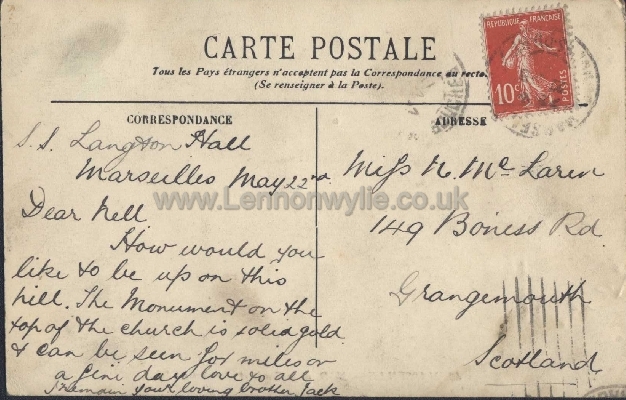 CARTE POSTALE
Tous les Pays étrangers n'acceptent pas la Correspondance au recto.
(Se renseigner à la Poste).
CORRESPONDANCE
S.S. Langton Hall
Marseilles May 22nd
Dear Nell
How would you
like to be up on this
hill. The Monument on the
top of the church is solid gold
& can be seen for miles on
a fini day love to all
I remain your loving brother Jack
ADRESSE
Miss N. Mc Laren
149 Boness Rd.
Grangemouth
Scotland
REPUBLIQUE FRANÇAISE
10c
POSTES
www.Lennonwylie.co.uk